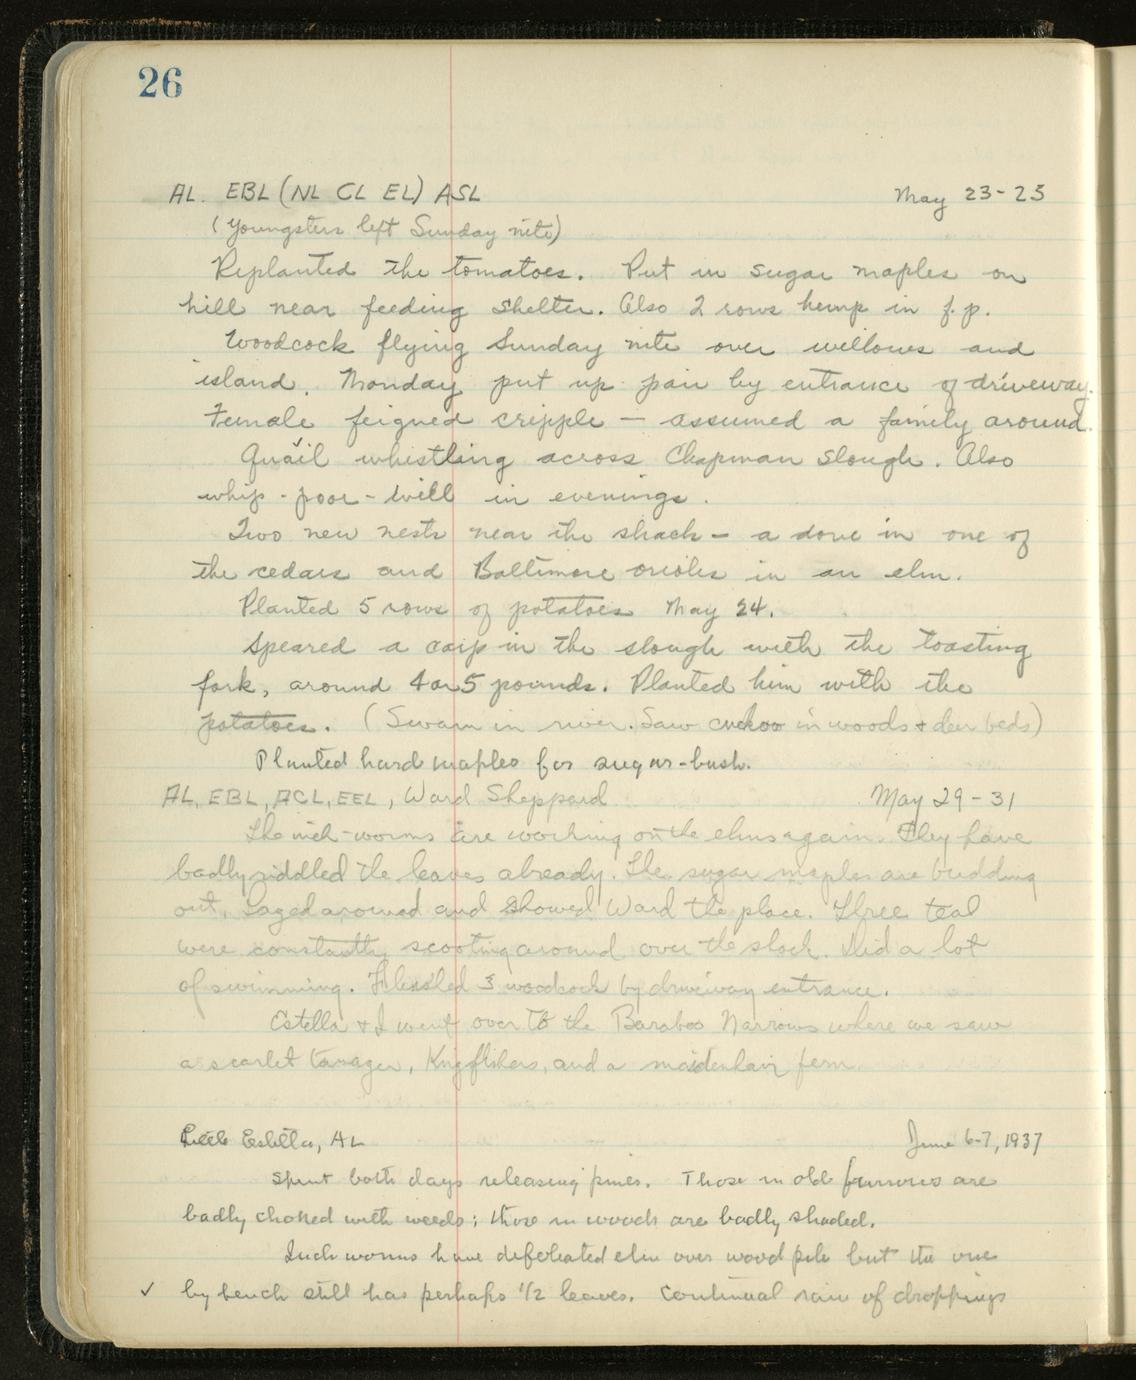 26
AL. EBL (NL CL EL) ASL May 23-25
(Youngsters left Sunday nite)
Replanted the tomatoes. Put in sugar maples on
hill near feeding shelter. Also 2 rows hemp in f.p.
Woodcock flying Sunday nite over willows and
island. Monday put up pair by entrance of driveway.
Female feigned cripple — assumed a family around.
Quail whistling across Chapman Slough. Also
whip-poor-will in evenings.
Two new nests near the shack — a dove in one of
the cedars and Baltimore orioles in an elm.
Planted 5 rows of potatoes May 24.
Speared a carp in the slough with the toasting
fork, around 4 or 5 pounds. Planted him with the
potatoes. (Swam in river. Saw cuckoo in woods & deer beds)
Planted hard maples for sugar-bush.
AL, EBL, ACL, EEL, Ward Sheppard May 29-31
The inch-worms are working on the elms again. They have
badly riddled the leaves already. The sugar maples are budding
out. around and showed Ward the place. Three teal
were constantly scooting around over the slock. Did a lot
of swimming. Flushed 3 woodcock by driveway entrance.
Estella & I went over to the Baraboo Narrows where we saw
a scarlet tanager, Kingfishers, and a maidenhair fern.
Estella, AL June 6-7, 1937
Spent both days releasing pines. Those in old furrows are
badly choked with weeds; those in woods are badly shaded.
Inch worms have defoliated elm over wood pile but the one
✓ by bench still has perhaps 1/2 leaves. Continual rain of droppings